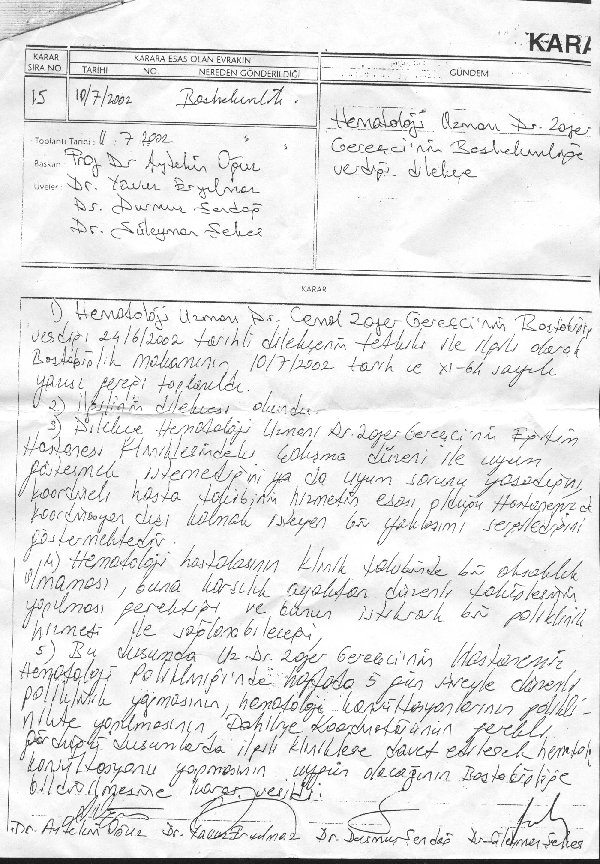 KARA
KARAR
SIRA NO
KARARA ESAS OLAN EVRAKIN
TARİHİ NO. NEREDEN GÖNDERİLDİĞİ
GÜNDEM
15 10/7/2002 Bashekimlik.
Hematoloji Uzmanı Dr. Zafer
Gereççi'nin Bashekimliğe
verdiği dilekçe
Toplantı Tarihi: 11.7.2002
Başkan: Prof Dr Aytekin Oğuz
Üyeler: Dr. Yavuz Eryılmaz
Dr. Durmuş Serdağ
Dr. Süleyman
KARAR
1) Hematoloji Uzmanı Dr. Cemal Zafer Gereççi'nin
verdiği 24/6/2002 tarihli dilekçenin tetkiki ile ilgili olarak
Bastabiplik Makamının 10/7/2002 tarih ve XI-64 sayılı
yazısı gereği toplanıldı.
2) İlgilinin dilekçesi okundu.
3) Dilekçe Hematoloji Uzmanı Dr. Zafer Gereççi'nin Eğitim
Hastanesi Kliniklerindeki çalışma düzeni ile uyum
göstermek istemediğini ya da uyum sorunu yaşadığını,
koordineli hasta takibinin hizmetin esası olduğu Hastanemizde
koordinasyon dışı kalmak isteyen bir yaklaşımı sergilediğini
göstermektedir.
4) Hematoloji hastalarının klinik takibinde bir aksaklık
olmaması, buna karşılık ayaktan düzenli takiplerinin
yapılması gerektiği ve bunun istikrarlı bir poliklinik
hizmeti ile sağlanabileceği,
5) Bu durumda Uz. Dr. Zafer Gereççi'nin Hastanemiz
Hematoloji Polikliniği'nde haftada 5 gün süreyle düzenli
poliklinik yapmasının, hematoloji konsültasyonlarının polikli-
nikte yapılmasının, Dahiliye Koordinatörünün gerekli
gördüğü durumlarda ilgili kliniklere davet edilerek hematoloji
konsültasyonu yapmasının uygun olacağının Bastabipliğe
bildirilmesine karar verildi.
Dr. Aytekin Oğuz Dr. Yavuz Eryılmaz Dr. Durmuş Serdağ Dr. Süleyman